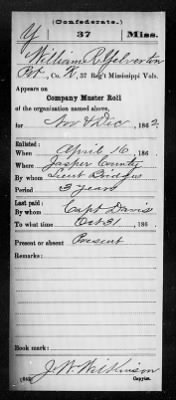 (Confederate.)
Y | 37 | Miss.
William R Yelverton
Pvt, Co. K, 37 Reg't Mississippi Vols.
Appears on
Company Muster Roll
of the organization named above,
for Nov & Dec, 1862.
Enlisted:
When April 16, 186 .
Where Jasper County
By whom Lieut Bridges
Period 3 years
Last paid:
By whom Capt Davis
To what time Oct 31, 186 .
Present or absent Present
Remarks:
Book mark:
J. W. Wilkinson
(642) Copyist.